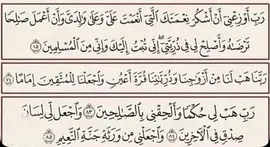 رَبِّ أَوْزِعْنِيٓ أَنْ أَشْكُرَ نِعْمَتَكَ ٱلَّتِيٓ أَنْعَمْتَ عَلَيَّ وَعَلَىٰ وَٰلِدَيَّ وَأَنْ أَعْمَلَ صَٰلِحًا
تَرْضَىٰهُ وَأَصْلِحْ لِي فِي ذُرِّيَّتِيٓ ۖ إِنِّي تُبْتُ إِلَيْكَ وَإِنِّي مِنَ ٱلْمُسْلِمِينَ ١٥
رَبَّنَا هَبْ لَنَا مِنْ أَزْوَٰجِنَا وَذُرِّيَّٰتِنَا قُرَّةَ أَعْيُنٍ وَٱجْعَلْنَا لِلْمُتَّقِينَ إِمَامًا
رَبِّ هَبْ لِي حُكْمًا وَأَلْحِقْنِي بِٱلصَّٰلِحِينَ ٨٣ وَٱجْعَل لِّي لِسَانَ
صِدْقٍ فِي ٱلْءَاخِرِينَ ٨٤ وَٱجْعَلْنِي مِن وَرَثَةِ جَنَّةِ ٱلنَّعِيمِ ٨٥